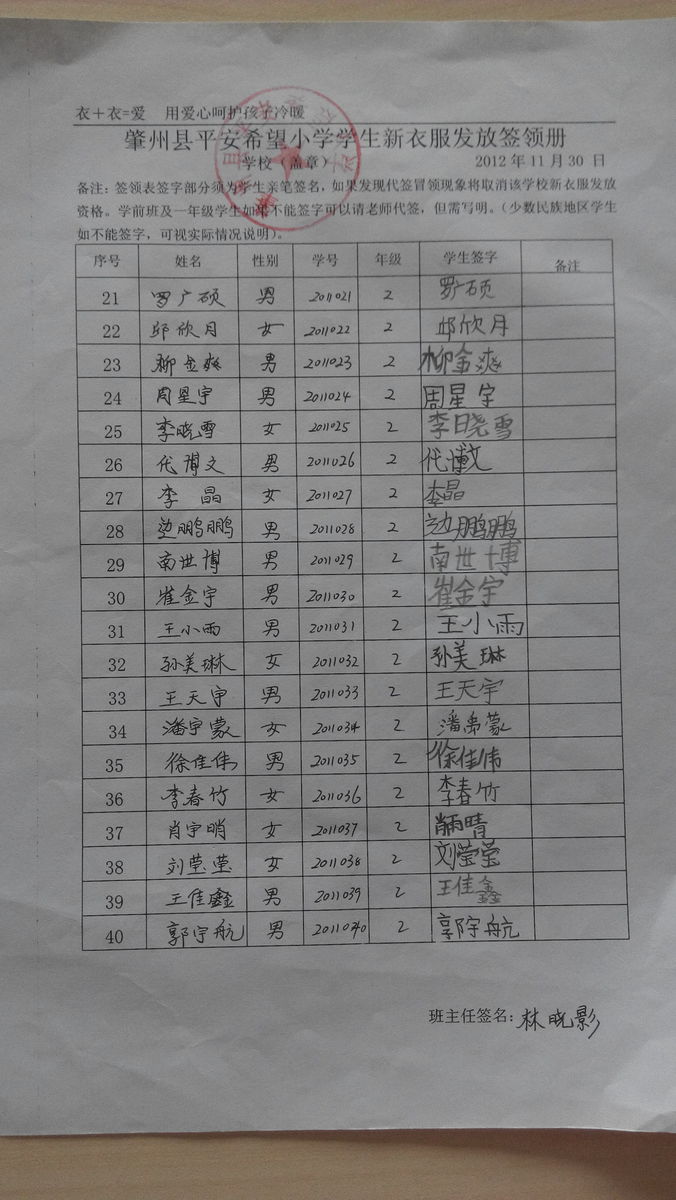 衣+衣=爱 用爱心呵护孩子冷暖
肇州县平安希望小学学生新衣服发放签领册
学校（盖章） 2012年11月30日
备注：签领表签字部分须为学生亲笔签名，如果发现代签冒领现象将取消该学校新衣服发放
资格。学前班及一年级学生如果不能签字可以请老师代签，但需写明。（少数民族地区学生
如不能签字，可视实际情况说明）。
序号 姓名 性别 学号 年级 学生签字 备注
21 罗广硕 男 2011021 2 罗广硕
22 邱欣月 女 2011022 2 邱欣月
23 柳金爽 男 2011023 2 柳金爽
24 周星宇 男 2011024 2 周星宇
25 李晓雪 女 2011025 2 李晓雪
26 代博文 男 2011026 2 代博文
27 李晶 女 2011027 2 李晶
28 鹏鹏 男 2011028 2 鹏鹏
29 南世博 男 2011029 2 南世博
30 崔金宇 男 2011030 2 崔金宇
31 王小雨 男 2011031 2 王小雨
32 孙美琳 女 2011032 2 孙美琳
33 王天宇 男 2011033 2 王天宇
34 潘宇蒙 女 2011034 2 潘宇蒙
35 徐佳伟 男 2011035 2 徐佳伟
36 李春竹 女 2011036 2 李春竹
37 肖宇明 女 2011037 2
38 刘莹莹 女 2011038 2 刘莹莹
39 王佳鑫 男 2011039 2 王佳鑫
40 郭宇航 男 2011040 2 郭宇航
班主任签名：林晓影